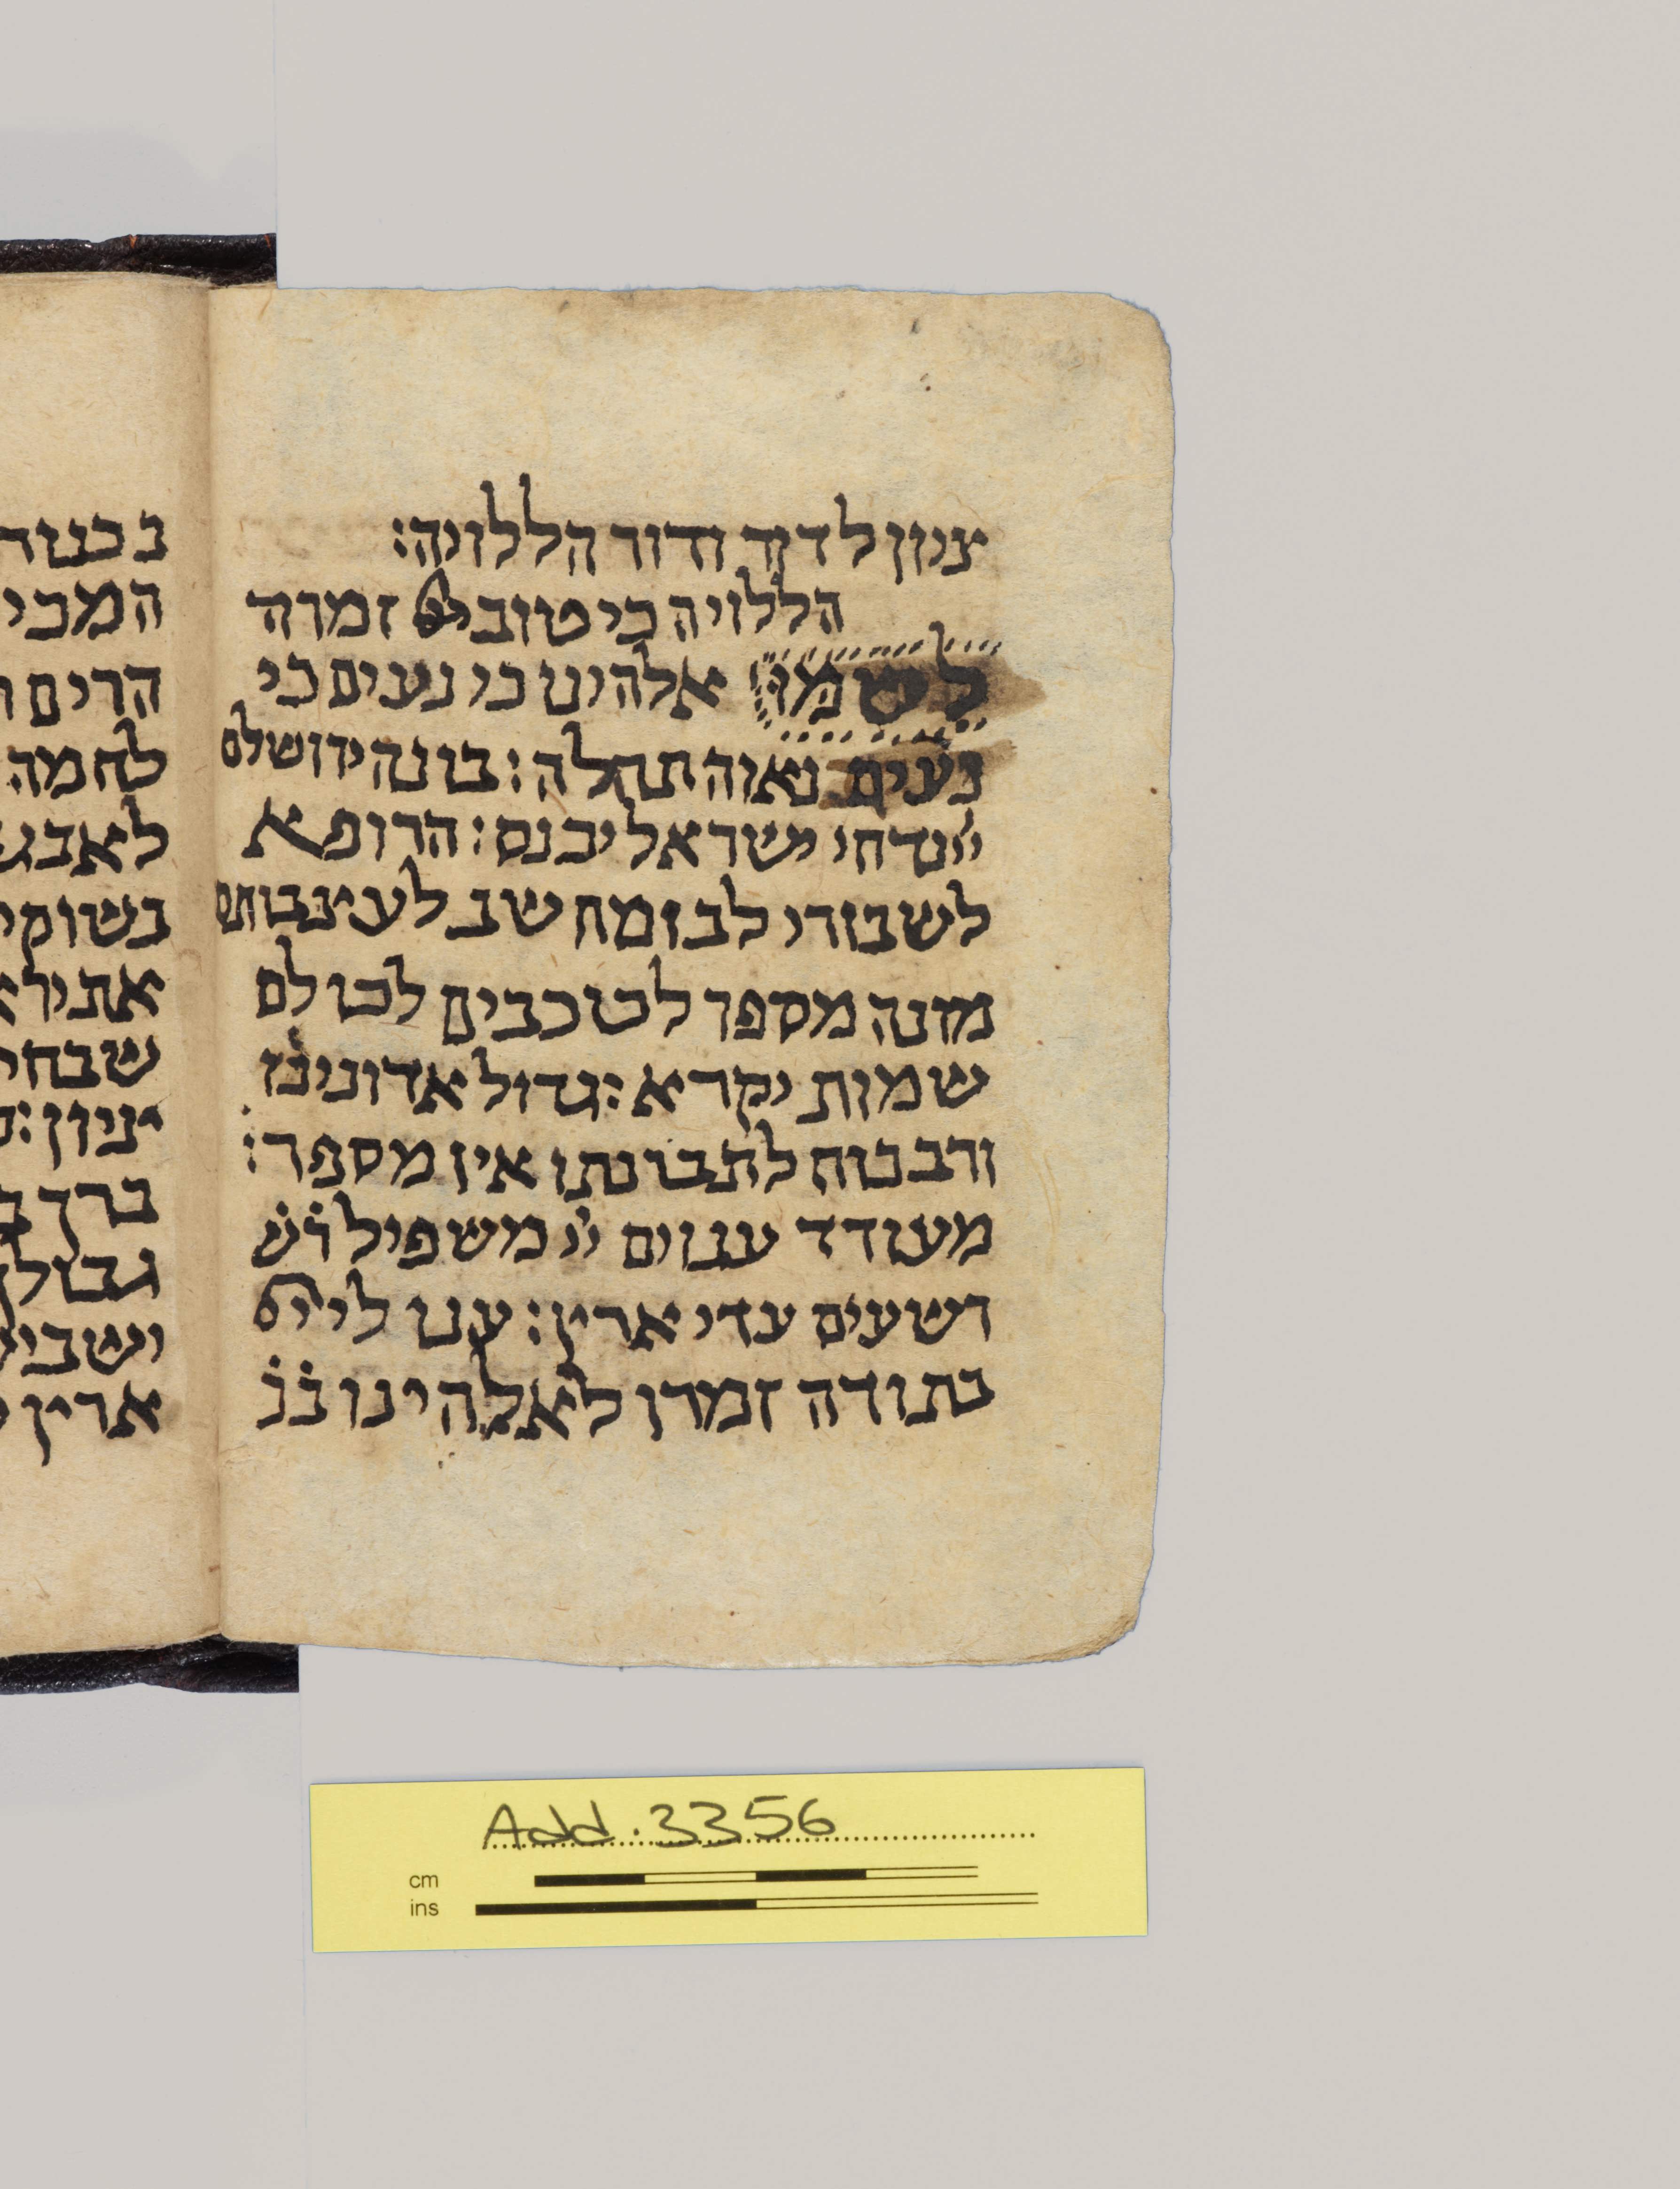 ציון לדור ודור הללויה׃
הללויה כי טוב זמרה
לשמו אלהינו כי נעים כי
נעים נאוה תהלה׃ בונה ירושלם
ייי נדחי ישראל יכנס׃ הרופא
לשבורי לב ומחשב לעיצבותם
מונה מספר לכוכבים לכולם
שמות יקרא׃ גדול אדונינו
ורב כוח לתבונתו אין מספר׃
מעודד ענוים ייי משפיל רש
רשעים עדי ארץ׃ ענו ליי
בתודה זמרו לאלהינו בכ
בכנור
המכי
הרים
לחמה
לאבני
בשוקי
את ירא
שבחי
ציון׃
ברך ב
גבולך
ישביע
ארץ
Add. 3356
cm
ins